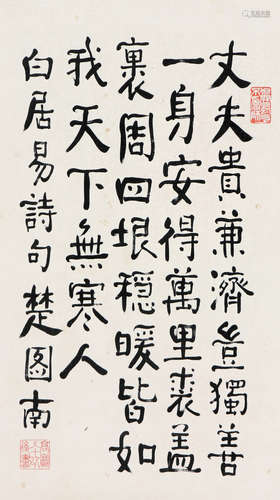 丈夫貴兼濟豈獨善
一身安得萬里裘盖
裹周四垠穩暖皆如
我天下無寒人
白居易詩句楚图南